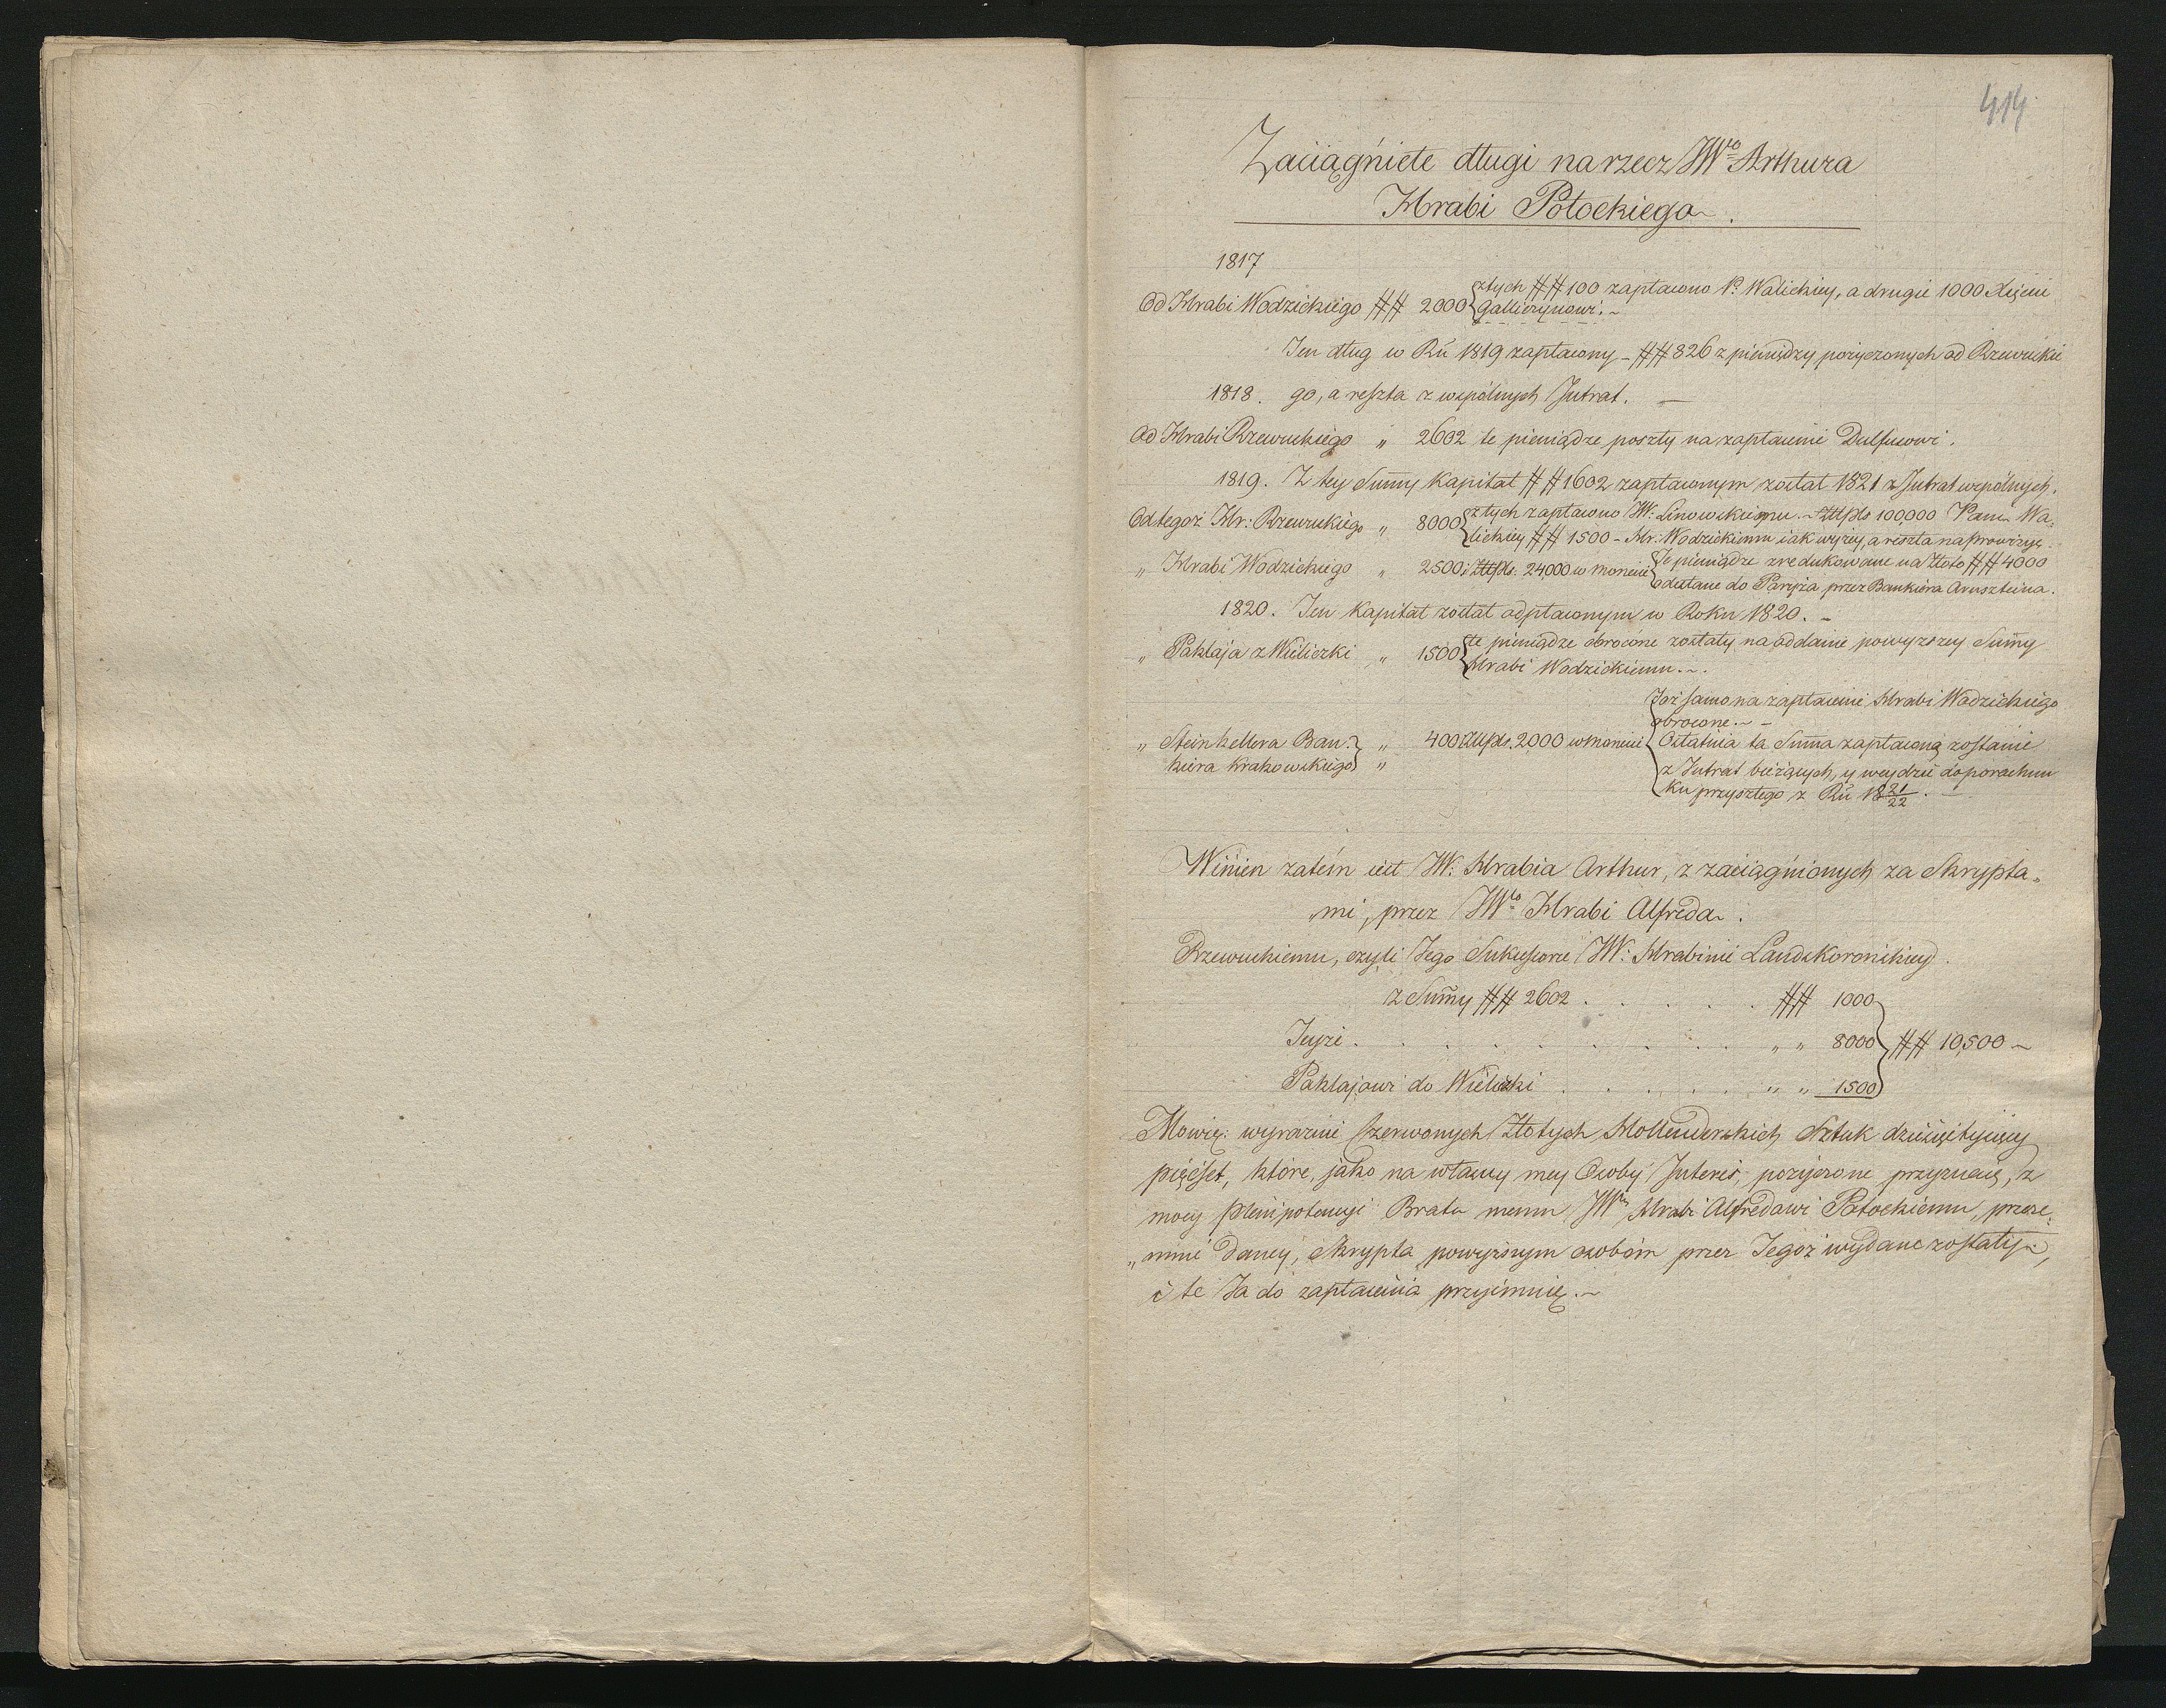 414
Zaciągnięte długi na rzecz JWo Arthura
Hrabi Potockiego.
1817
Od Hrabi Wodzickiego ## 2000 z tych ## 100 zapłacono P. Walickiey, a drugie 1000 Xięciu
Galliczynowi.
Ten dług w Ru 1819 zapłacony - ## 826 z pieniędzy pożyczonych od Rzewuckie
1818. go, a reszta z wspólnych Intrat. —
Od Hrabi Rzewuckiego „ 2602 te pieniądze poszły na zapłacenie Dulfusowi.
1819. Z tey Sumy Kapitał ## 1602 zapłaconym został 1821 z Intrat wspólnych.
Od tegoż Hr: Rzewuckiego „ 8000 z tych zapłacono JW: Linowskiemu Złtpls 100,000 Pani Wa-
lickiey ## 1500 - Hr: Wodzickiemu iak wyżey, a reszta na prowizyę
„ Hrabi Wodzickiego „ 2500 i Złtpls. 24,000 w monecie Te pieniądze zredukowane na złoto ## 4000
odesłane do Paryża przez Bankiera Arnszteina.
1820. Ten Kapitał został odpłaconym w Roku 1820. -
„ Paktaja z Wieliczki „ 1500 te pieniądze obrócone zostały na oddanie powyższey Sumy
Hrabi Wodzickiemu.
Toż samo na zapłacenie Hrabi Wodzickiego
obrócone. -
„ Steinkellera Ban- „ 400 Złtpls. 2,000 w monecie Ostatnia ta Summa zapłaconą zostanie
kiera krakowskiego „
z Intrat bieżących, y weydzie do porachun
ku przyszłego z Ru 18 21/22. —
Winien zatem iest JW: Hrabia Arthur, z zaciągnionych za Skrypta-
„mi, przez JWo Hrabi Alfreda.
Rzewuckiemu, czyli Jego Sukcessorce JW: Hrabinie Landskorońskiey.
z Sumy ## 2602 . . . . . ## 1000
Teyże . . . . . . . . . „ „ 8000 ## 10,500 ~
Paktajowi do Wieliczki . . . . . „ „ 1500
Mówię: wyraźnie Czerwonych Złotych Hollenderskich Sztuk dziesięćtysięcy
pięćset, które, jako na własney mey Osoby Interes, pożyczone przyznaię, z
mocy plenipotencyi Bratu memu JWmu Hrabi Alfredowi Potockiemu, przeze-
„mnie Daney, Skrypta powyższym osobom przez Tegoż wydane zostały,
i te Ja do zapłacenia przyimuię. ~